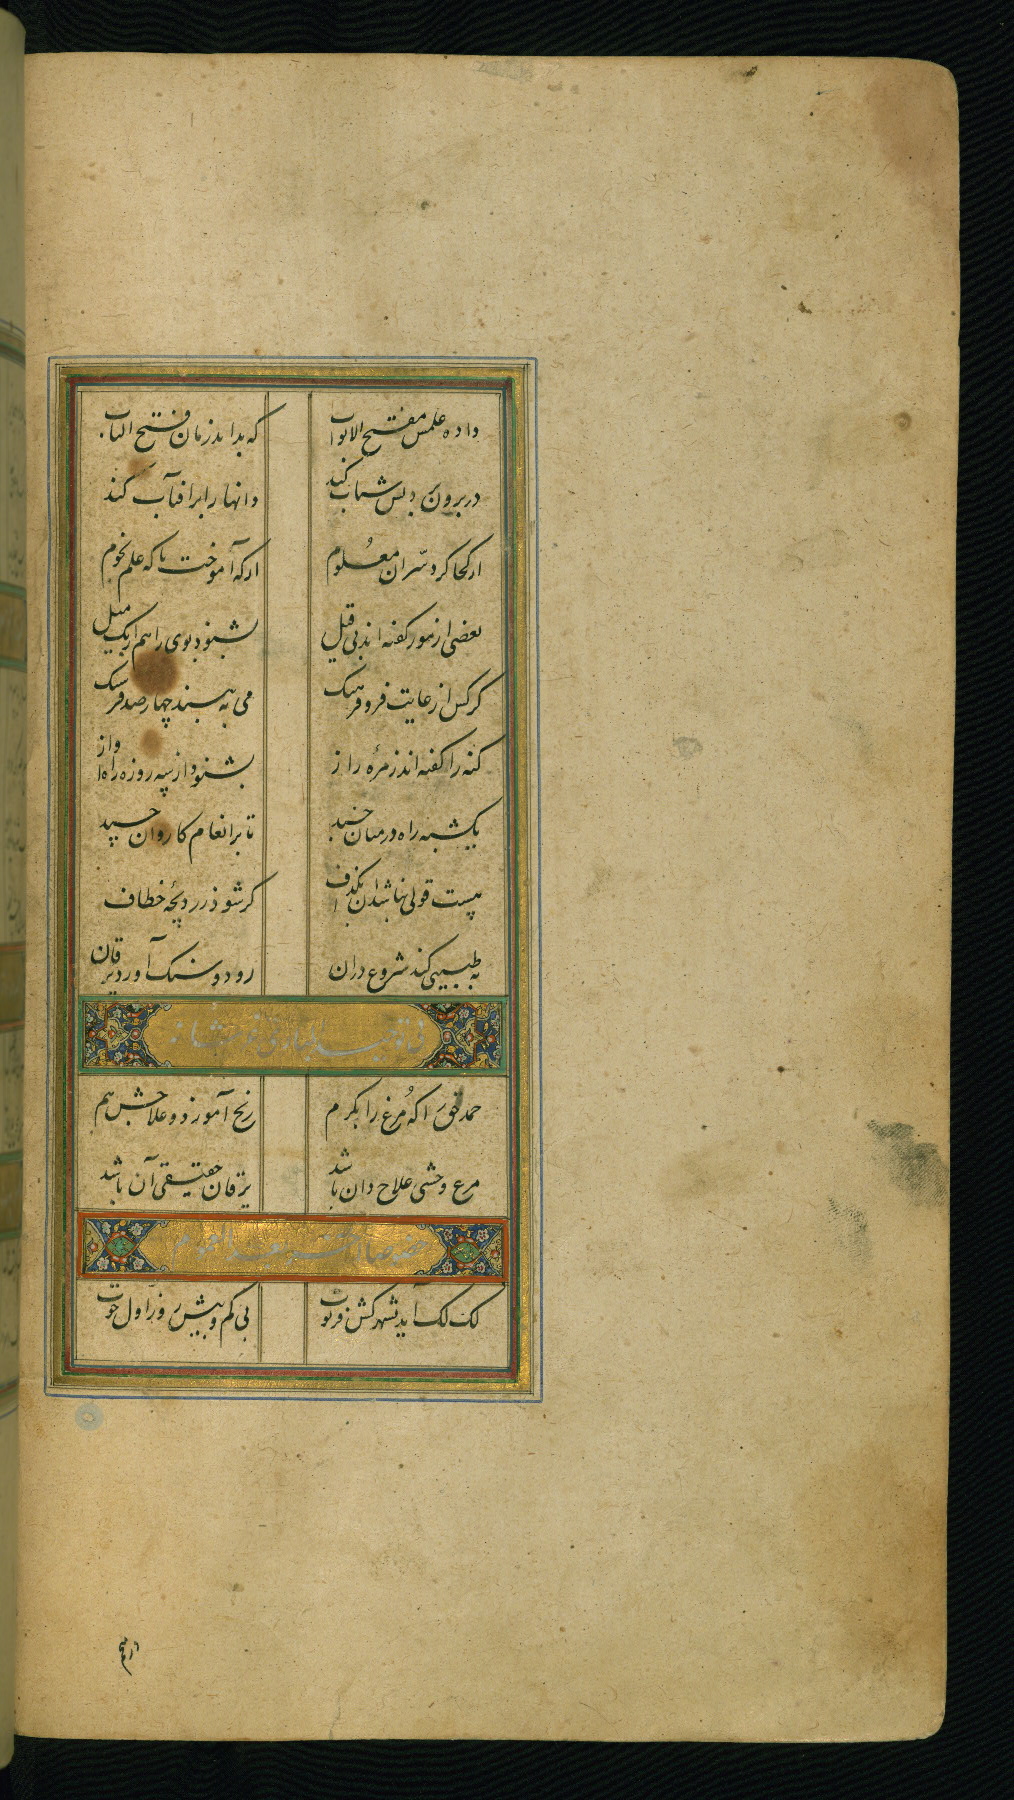 داده علمش مفتح الابواب که بداند زمان فتح الباب
در برون دلش شهاب کند دانها را برافتاب کند
از کجا کرد سر آن معلوم از که آموخت تا که علم نجوم
بعضی از مور کفته اند بی قیل بشنود بوی را هم از یک میل
کرکس از غایت فر و فرهنک می به بیند چهار صد فرسنک
کنه را کفته اند زمره راز بشنود از سه روزه راه آواز
یکشبه راه در میان خسبد تا بر انعام کاروان چسبد
نیست قولی نهاشدان بکذاف کر شود در دریچه خطاف
به طبیبی کند شروع در آن رود و سنک آورد یرقان
فی توحید الباری عز شانه
حمد فوری که مرغ را بکرم رنج آموزد و علاجش هم
مرغ وحشی علاج دان باشد یرقان حقیقی آن باشد
لک لک آید بشهر کش فرتوت بی کم و بیش روز اول حوت